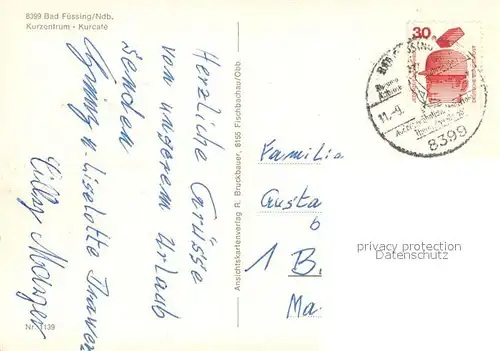 8399 Bad Füssing/Ndb.
Kurzentrum - Kurcafé
Herzliche Grüsse
von unserem Urlaub
senden
u. Liselotte
Willy Metzger
Nr. 1139
Ansichtskartenverlag R. Bruckbauer, 8155 Fischbachau/Obb.
30
11.-9.
8399
Familie
Gusta
6
1 B.
Ma
privacy protection
watermark